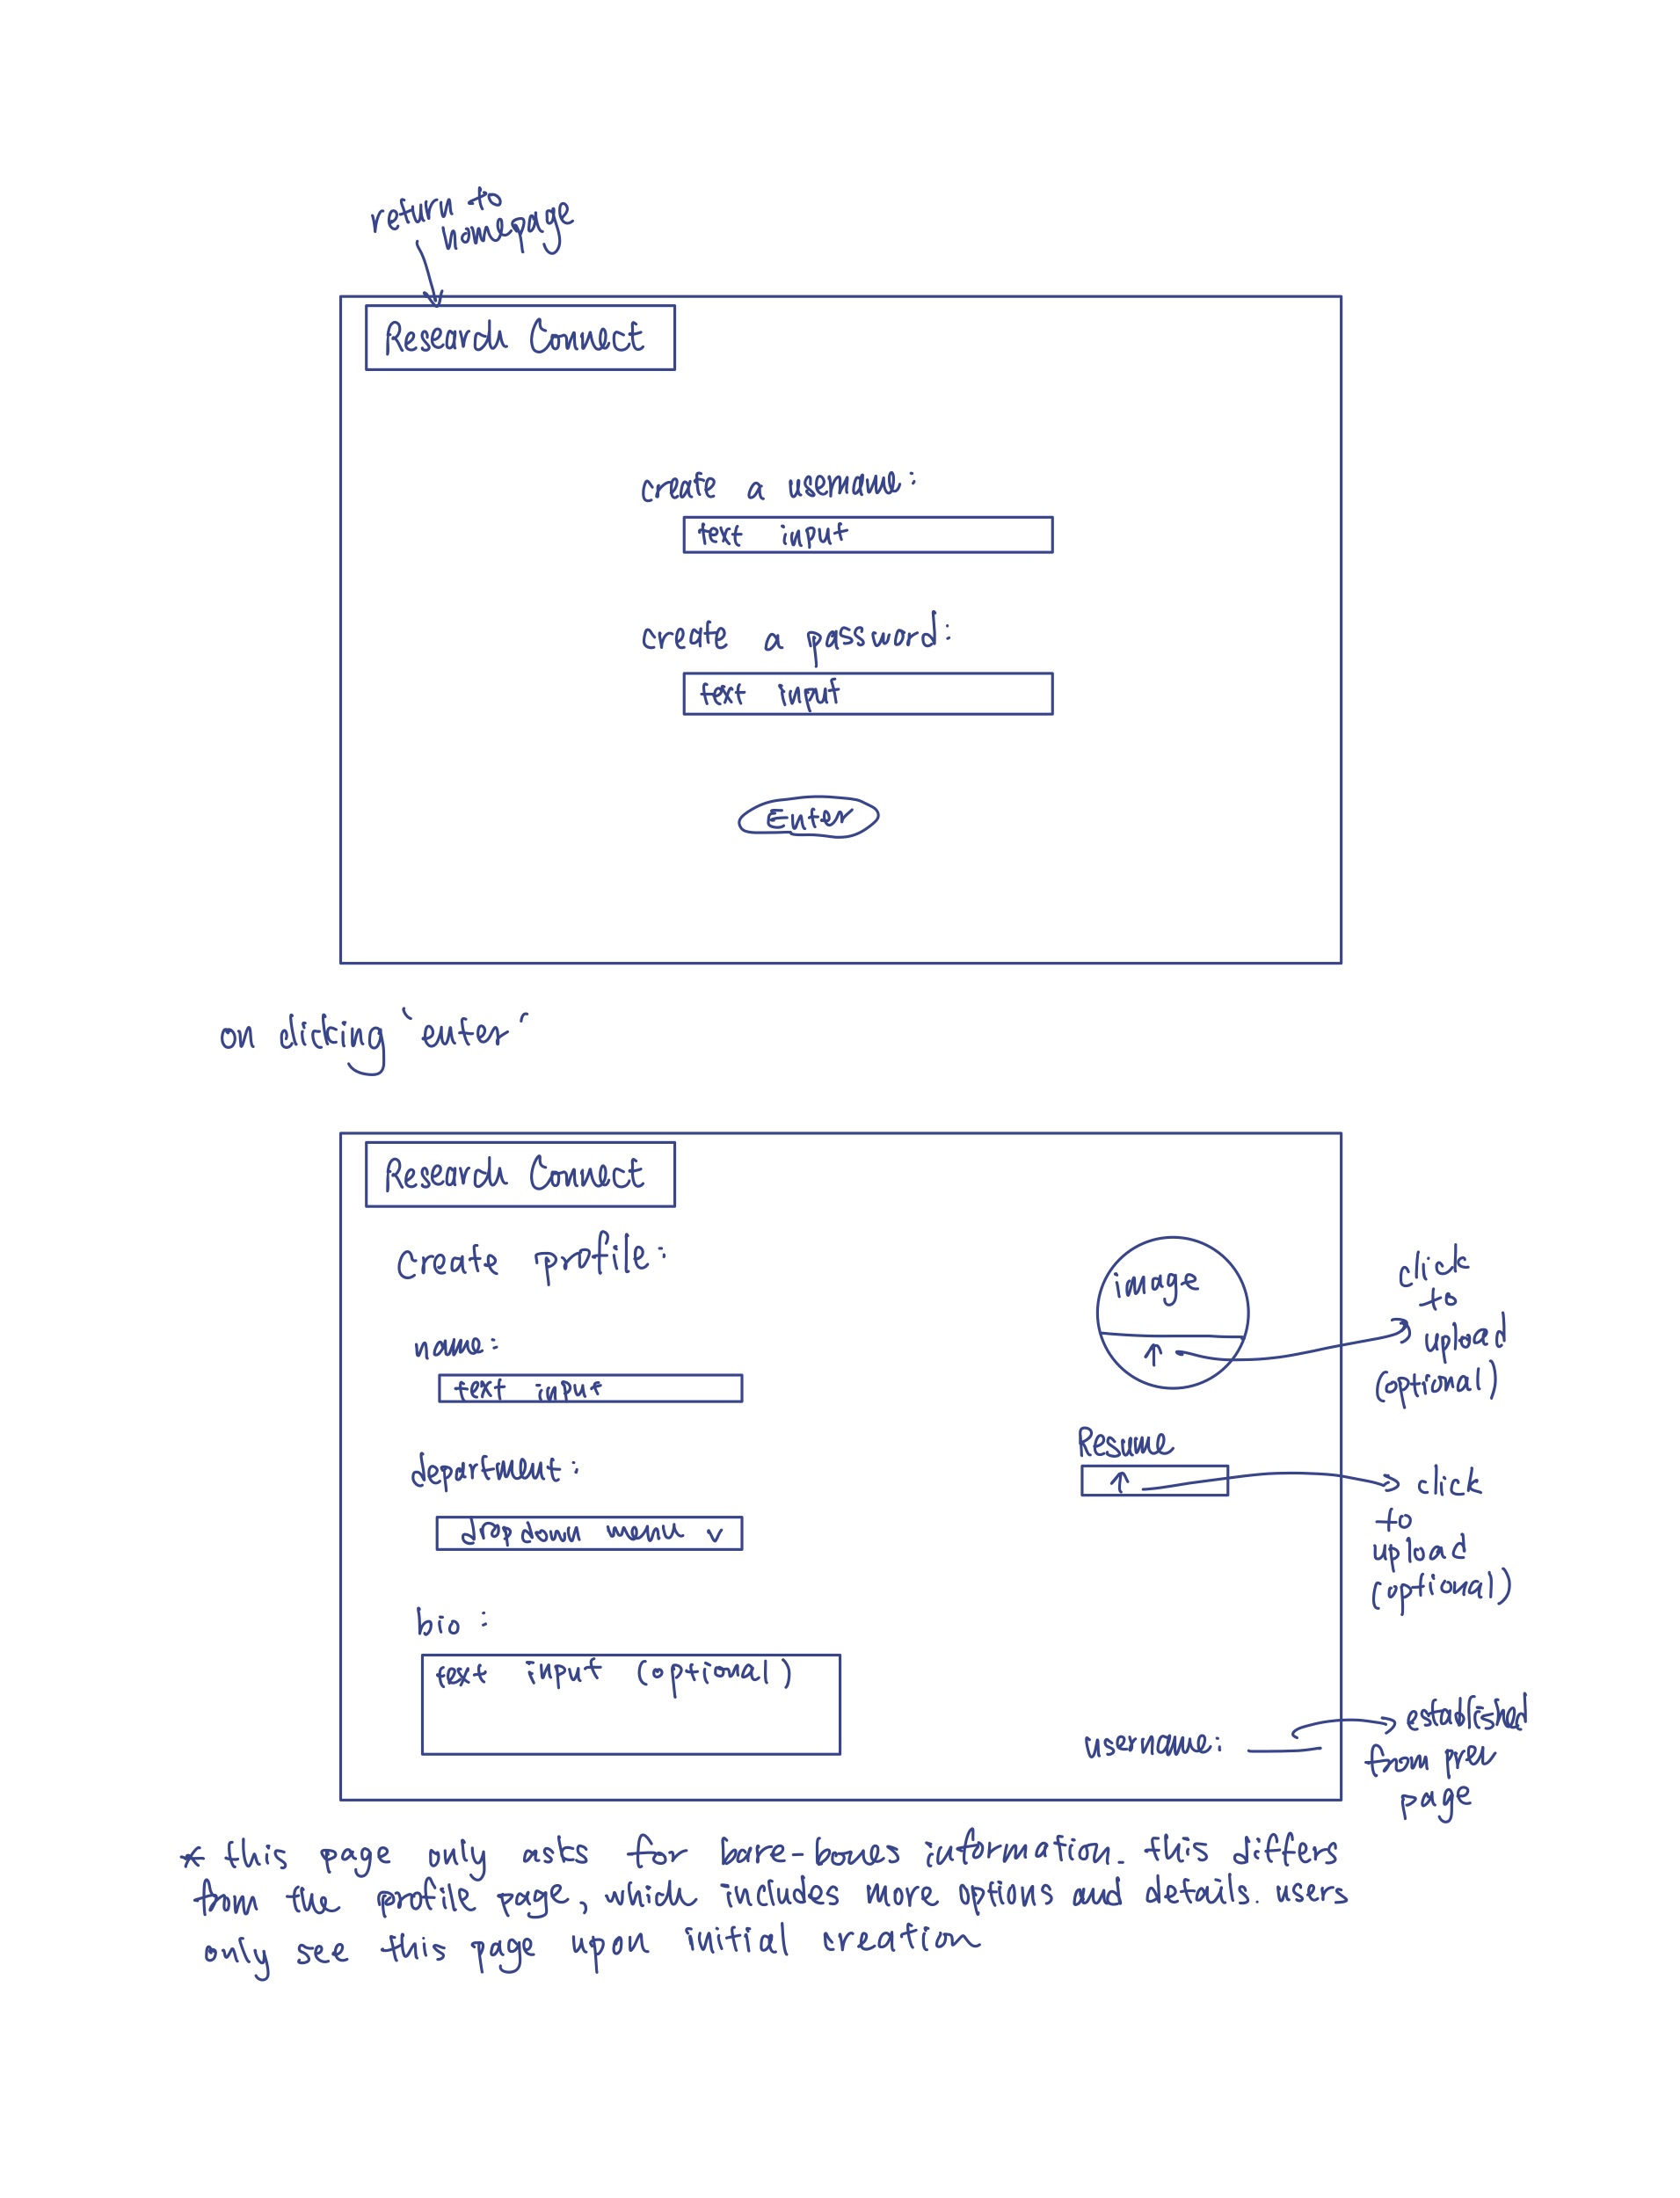 return to
homepage
Research Connect
create a username:
text input
create a password:
text input
Enter
on clicking 'enter'
Research Connect
Create profile:
image
click
to
upload
(optional)
name:
text input
Resume
click
to
upload
(optional)
department:
dropdown menu v
bio:
text input (optional)
username:
established
from prev
page
* this page only asks for bare-bones information. this differs
from the profile page, which includes more options and details. users
only see this page upon initial creation